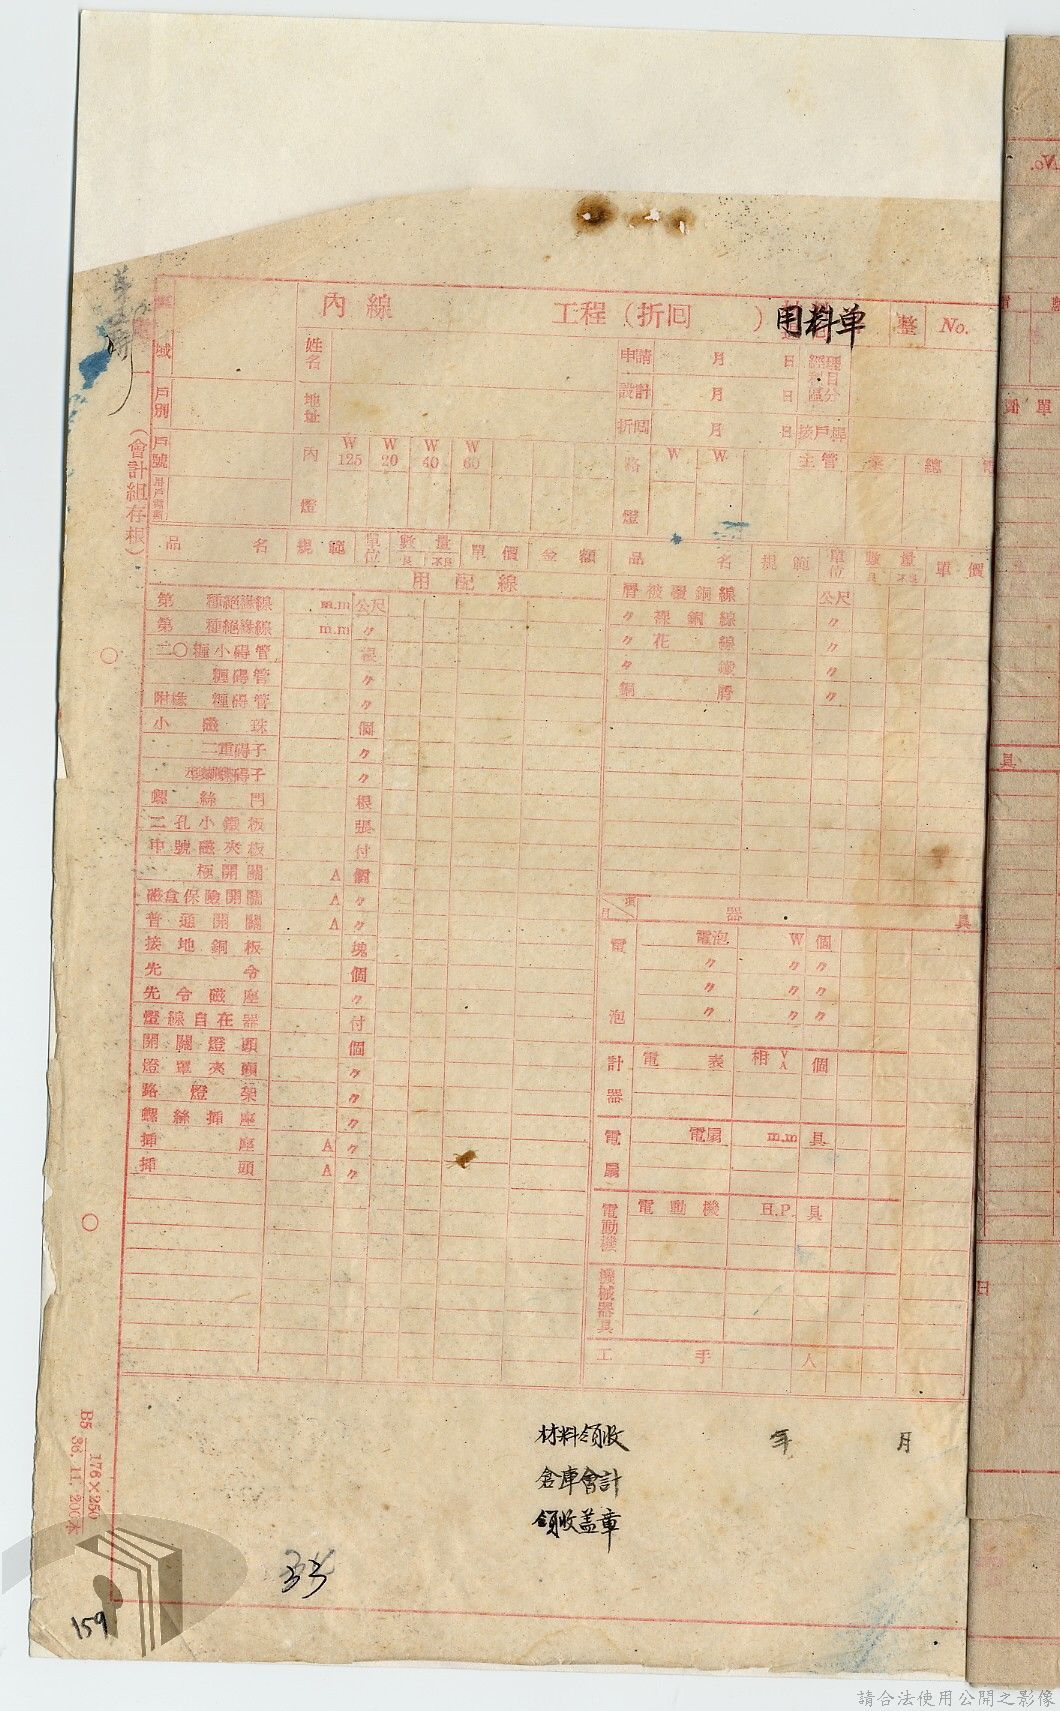 內線 工程（折囘 ） 用料單 整 No.
域
姓名
申請 月 日 經理
設計 月 日
戶別
地址
折囘 月 日 接戶桿
戶號
內燈
W 125
W 20
W 40
W 60
路燈
W W
主管
總
（會計組存根）
品名 規範 單位 數量 單價 金額
品名 規範 單位 數量 單價
用配線
第 種絕緣線 m.m 公尺
第 種絕緣線 m.m 〃
二〇糎小碍管
糎碍管 〃
附椽 糎碍管 〃
小磁珠 個
二重碍子 〃
碍子 〃
螺絲門 根
二孔小鐵板 張
中號磁夾板 付
極開關 A 個
磁盒保險開關 A 〃
普通開關 A 〃
接地銅板 塊
先令 個
先令磁座 〃
燈線自在器 付
開關燈頭 個
燈罩夾頭 〃
路燈架 〃
螺絲挿座 〃
挿座 A 〃
挿頭 A 〃
屑被覆銅線 公尺
〃 裸銅線 〃
〃 花線 〃
〃 鐵 〃
銅屑 〃
項目 器具
電泡
電泡 W 個
〃 〃 〃
〃 〃 〃
〃 〃 〃
計器
電表 相 V A 個
電扇
電扇 m.m 具
電動機
電動機 H.P. 具
機械器具
工手 人
材料領收 年 月
倉庫會計
領收盖章
B5 176×250
36. 11. 200本
33
159
No.
單價
具
日
請合法使用公開之影像